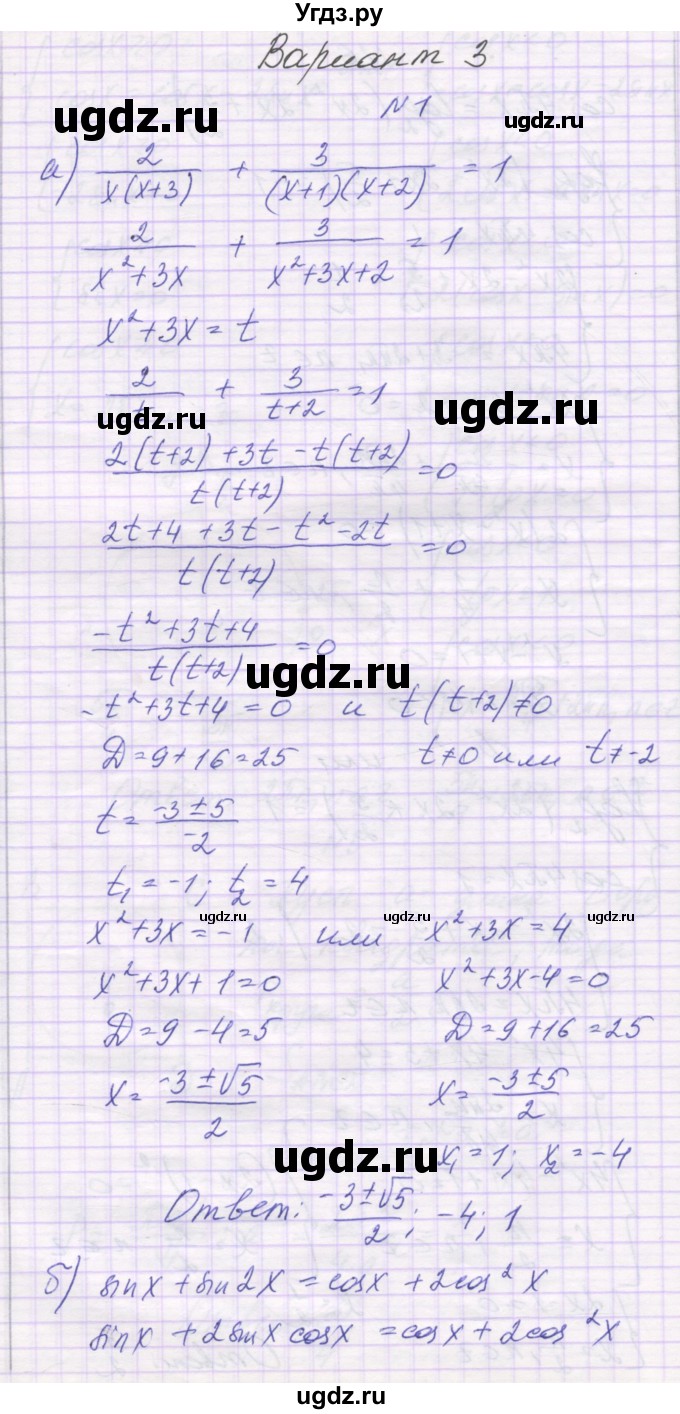 Угдз.ру
Вариант 3
ugdz.ru
N1
ugdz.ru
а) 2/(x(x+3)) + 3/((x+1)(x+2)) = 1
2/(x²+3x) + 3/(x²+3x+2) = 1
x²+3x = t
2/t + 3/(t+2) = 1
ugdz.ru
ugdz.ru
(2(t+2)+3t-t(t+2))/(t(t+2)) = 0
(2t+4+3t-t²-2t)/(t(t+2)) = 0
(-t²+3t+4)/(t(t+2)) = 0
ugdz.ru
-t²+3t+4=0 и t(t+2)≠0
D=9+16=25 t≠0 или t≠-2
t = (-3±5)/-2
t₁=-1; t₂=4
ugdz.ru
ugdz.ru
ugdz.ru
x²+3x=-1 или x²+3x=4
x²+3x+1=0 x²+3x-4=0
D=9-4=5 D=9+16=25
x = (-3±√5)/2 x = (-3±5)/2
ugdz.ru
x₁=1; x₂=-4
Ответ: (-3±√5)/2; -4; 1
б) sinx+sin2x=cosx+2cos²x
sinx+2sinxcosx=cosx+2cos²x
ugdz.ru